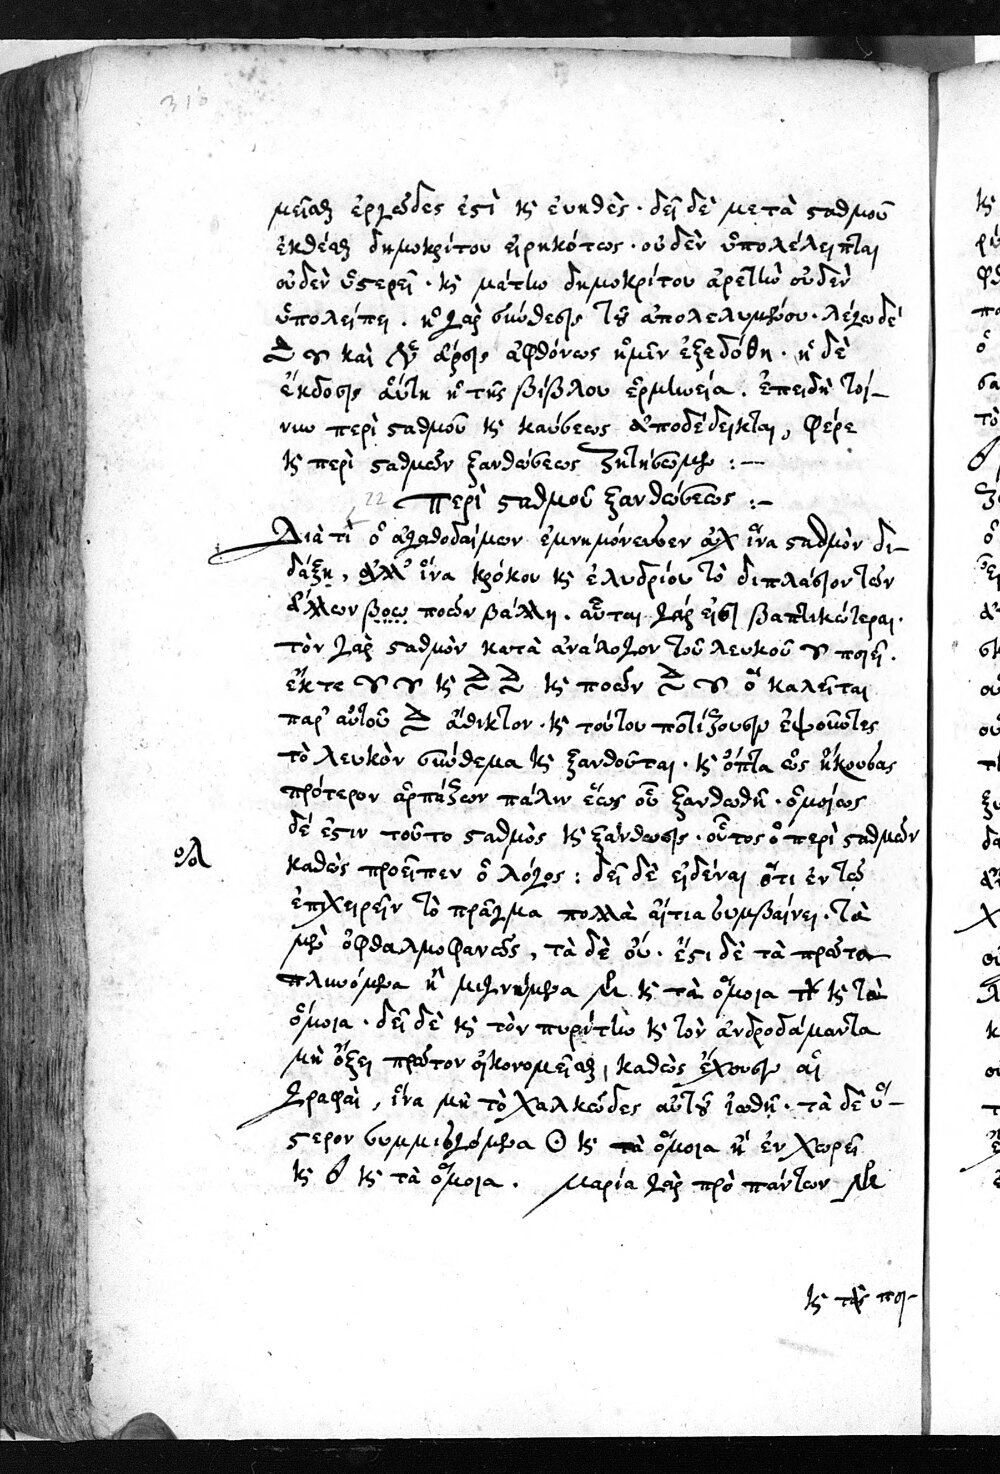 310
μεῖσθαι ἐργῶδες ἐστὶ καὶ εὐηθὲς· δεῖ δὲ μετὰ σταθμοῦ
ἐκθέσθαι δημοκρίτου εἰρηκότως· οὐδὲν ὑπολέλειπται
οὐδὲν ὑστερεῖ· καὶ μάτην δημοκρίτου ἀρετὴν οὐδὲν
ὑπολείπει. ἡ γὰρ σύνθεσις τοῦ ἀπολελυμένου· λέγω δὲ
καὶ ἄρσις ἀφθόνως ἡμῖν ἐξεδόθη· ἡ δὲ
ἔκδοσις αὕτη ἡ τῆς βίβλου ἑρμηνεία. ἐπειδὴ τοί-
νυν περὶ σταθμοῦ καὶ καύσεως ἀποδέδεικται, φέρε
καὶ περὶ σταθμῶν ξανθώσεως ζητήσωμεν :—
22 Περὶ σταθμοῦ ξανθώσεως :–
Διὰ τί ὁ ἀγαθοδαίμων ἐμνημόνευσεν οὐχ ἵνα σταθμὸν δι-
δάξῃ, ἀλλ' ἵνα κρόκου καὶ ἐλυδρίου τὸ διπλάσιον τῶν
ἄλλων βοῶ ποιῶν βάλλῃ. αὗται γάρ εἰσι βαπτικώτεραι.
τὸν γὰρ σταθμὸν κατὰ ἀνάλογον τοῦ λευκοῦ ποιεῖ.
ἔκ τε καὶ καὶ ποιῶν ὃ καλεῖται
παρ' αὐτοῦ ἄθικτον· καὶ τούτου ποτίζουσιν ἑψοῦντες
τὸ λευκὸν σύνθεμα καὶ ξανθοῦται· καὶ ὄπτα ὡς ἤκουσας
πρότερον ἁρπάζων πάλιν ἕως οὗ ξανθωθῇ· ὁμοίως
δέ ἐστιν τοῦτο σταθμὸς καὶ ξάνθωσις· οὗτος ὁ περὶ σταθμῶν
καθὼς προεῖπεν ὁ λόγος : δεῖ δὲ εἰδέναι ὅτι ἐν τῷ
ἐπιχειρεῖν τὸ πρᾶγμα πολλὰ αἴτια συμβαίνει· τὰ
μὲν ὀφθαλμοφανῶς, τὰ δὲ οὔ· ἔστι δὲ τὰ πρῶτα
πλυνόμενα ἢ μιγνύμενα καὶ τὰ ὅμοια καὶ τὰ
ὅμοια· δεῖ δὲ καὶ τὸν πυρίτην καὶ τὸν ἀνδροδάμαντα
μὴ ὄξει πρῶτον οἰκονομεῖσθαι, καθὼς ἔχουσιν αἱ
γραφαὶ, ἵνα μὴ τὸ χαλκῶδες αὐτοῦ ἰωθῇ· τὰ δὲ ὕ-
στερον συμμισγόμενα ☉ καὶ τὰ ὅμοια ἢ ἐν χωρεῖ
καὶ καὶ τὰ ὅμοια. Μαρία γὰρ πρὸ πάντων